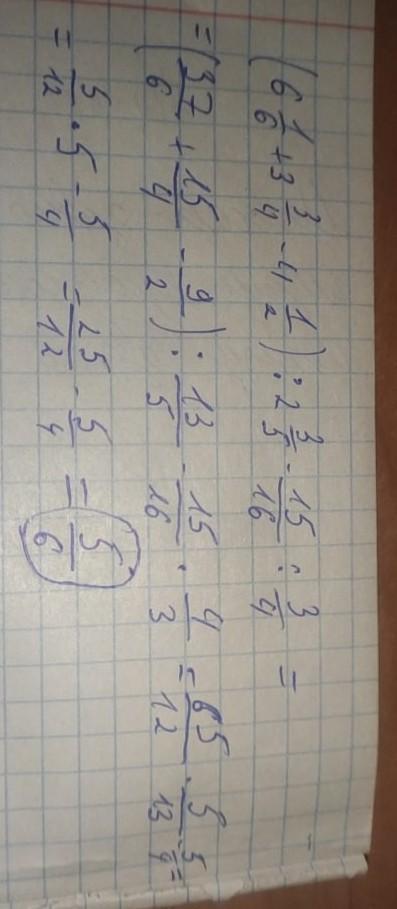 (6 1/6 + 3 3/4 - 4 1/2) : 2 3/5 - 15/16 : 3/4 =
= (37/6 + 15/4 - 9/2) : 13/5 - 15/16 · 4/3 = 65/12 · 5/13 - 5/4 =
= 5/12 · 5 - 5/4 = 25/12 - 5/4 = 5/6